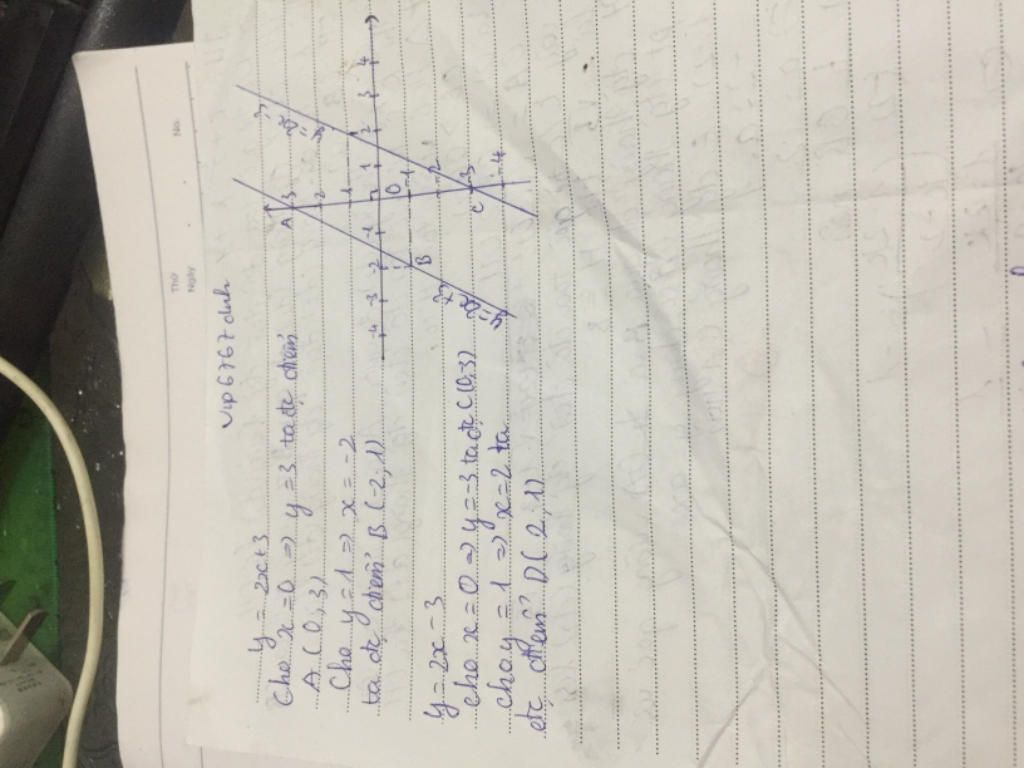 Thứ
Ngày
No.
Vip6767dinh
y = 2x+3
Cho x=0 => y=3 ta đc điểm
A(0,3)
Cho y=1 => x=-2
ta đc điểm B(-2,1)
y=2x-3
cho x=0 => y=-3 ta đc C(0,3)
cho y=1 => x=2 ta
đc điểm D(2,1)
A 3
2
1
-4 -3 -2 -1 0 1 2 3 4
O
-1
B
-2
C -3
-4
y=2x+3
y=2x-3